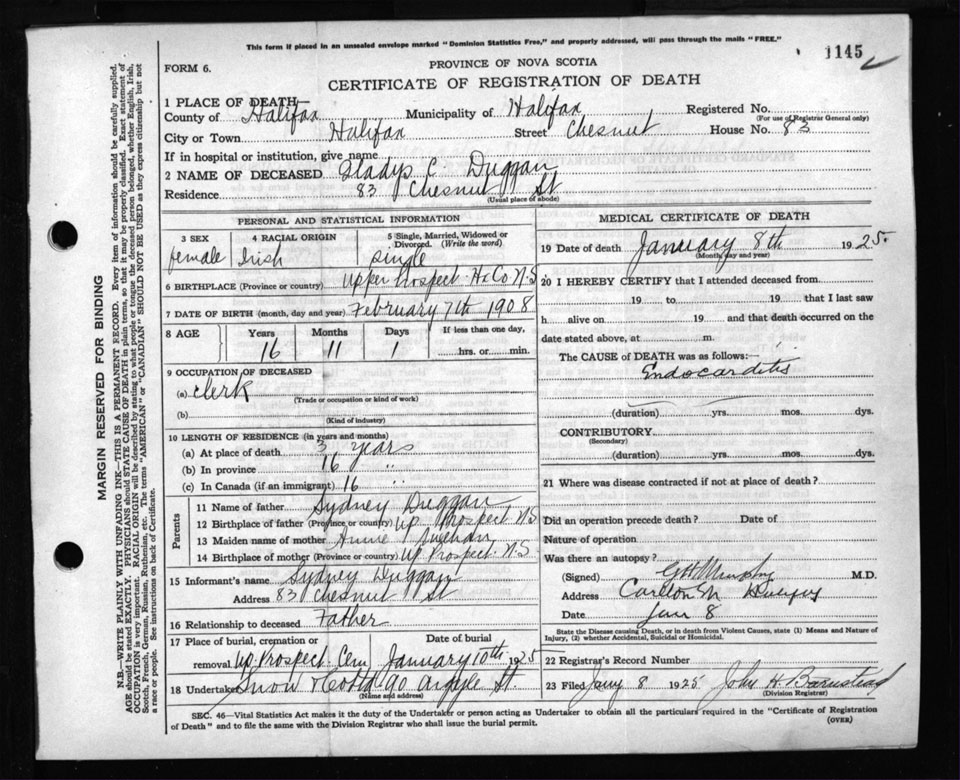 This form if placed in an unsealed envelope marked "Dominion Statistics Free," and properly addressed, will pass through the mails "FREE."
1145
FORM 6.
PROVINCE OF NOVA SCOTIA
CERTIFICATE OF REGISTRATION OF DEATH
1 PLACE OF DEATH
County of Halifax Municipality of Halifax Registered No.
(For use of Registrar General only)
City or Town Halifax Street Chesnut House No. 83
If in hospital or institution, give name
2 NAME OF DECEASED Gladys C. Duggan
Residence 83 Chesnut St
(Usual place of abode)
PERSONAL AND STATISTICAL INFORMATION
3 SEX 4 RACIAL ORIGIN 5 Single, Married, Widowed or Divorced. (Write the word)
female Irish single
6 BIRTHPLACE (Province or country) Upper Prospect Hx Co N.S.
7 DATE OF BIRTH (month, day and year) February 7th 1908
8 AGE Years Months Days If less than one day,
16 11 1 hrs. or min.
9 OCCUPATION OF DECEASED
(a) Clerk
(Trade or occupation or kind of work)
(b)
(Kind of industry)
10 LENGTH OF RESIDENCE (in years and months)
(a) At place of death 3 years
(b) In province 16 "
(c) In Canada (if an immigrant) 16 "
Parents
11 Name of father Sydney Duggan
12 Birthplace of father (Province or country) Up. Prospect N.S
13 Maiden name of mother Annie
14 Birthplace of mother (Province or country) Up Prospect. N.S
15 Informant's name Sydney Duggan
Address 83 Chesnut St
16 Relationship to deceased Father
17 Place of burial, cremation or Date of burial
removal Up. Prospect. Cem January 10th 1925
18 Undertaker Snow & Co Ltd 90 Argyle St
(Name and address)
MEDICAL CERTIFICATE OF DEATH
19 Date of death January 8th 1925.
(Month, day and year)
20 I HEREBY CERTIFY that I attended deceased from
19 to 19 that I last saw
h alive on 19 and that death occurred on
date stated above, at m.
The CAUSE of DEATH was as follows:
Endocarditis
(duration) yrs. mos. dys.
CONTRIBUTORY
(Secondary)
(duration) yrs. mos. dys.
21 Where was disease contracted if not at place of death?
Did an operation precede death? Date of
Nature of operation
Was there an autopsy?
(Signed) G H Murphy M.D.
Address Carleton St Halifax
Date Jan 8
State the Disease causing Death, or in death from Violent Causes, state (1) Means and Nature of
Injury, (2) whether Accidental, Suicidal or Homicidal.
22 Registrar's Record Number
23 Filed Jany 8 1925 John H. Barnstead
(Division Registrar)
SEC. 46—Vital Statistics Act makes it the duty of the Undertaker or person acting as Undertaker to obtain all the particulars required in the "Certificate of Registration
of Death" and to file the same with the Division Registrar who shall issue the burial permit.
(OVER)
MARGIN RESERVED FOR BINDING
N.B.—WRITE PLAINLY WITH UNFADING INK—THIS IS A PERMANENT RECORD. Every item of information should be carefully supplied.
AGE should be stated EXACTLY. PHYSICIANS should STATE CAUSE OF DEATH in plain terms, so that it may be properly classified. Exact statement of
OCCUPATION is very important. RACIAL ORIGIN will be described by stating to what people or tongue the deceased person belonged, whether English, Irish,
Scotch, French, German, Russian, Ruthenian, etc. The terms "AMERICAN" or "CANADIAN" SHOULD NOT BE USED as they express citizenship but not
a race or people. See instructions on back of Certificate.